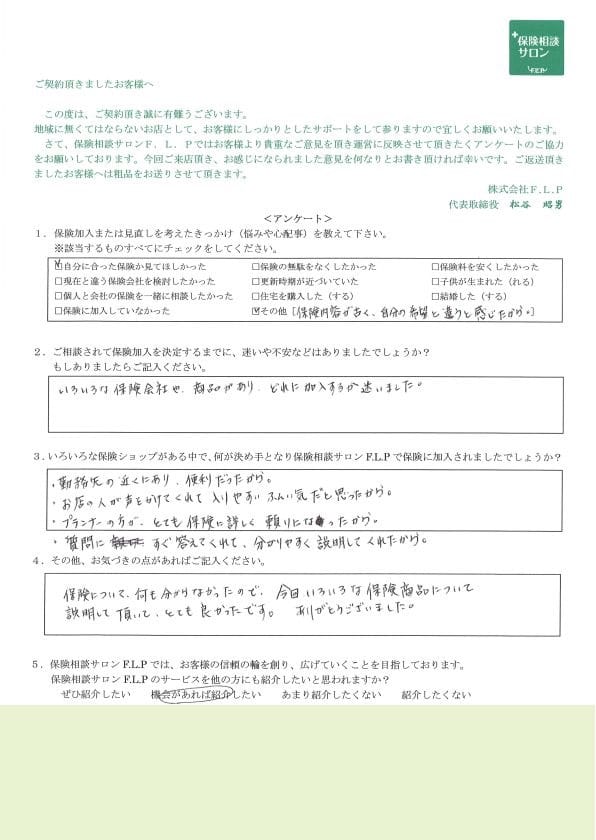 +保険相談
サロン
F.L.P
ご契約頂きましたお客様へ
この度は、ご契約頂き誠に有難うございます。
地域に無くてはならないお店として、お客様にしっかりとしたサポートをして参りますので宜しくお願いいたします。
さて、保険相談サロンF．L．Pではお客様より貴重なご意見を頂き運営に反映させて頂きたくアンケートのご協力
をお願いしております。今回ご来店頂き、お感じになられました意見を何なりとお書き頂ければ幸いです。ご返送頂き
ましたお客様へは粗品をお送りさせて頂きます。
株式会社F.L.P
代表取締役 松谷 昭男
＜アンケート＞
１．保険加入または見直しを考えたきっかけ（悩みや心配事）を教えて下さい。
（※該当するものすべてにチェックをしてください。
☑自分に合った保険か見てほしかった □保険の無駄をなくしたかった □保険料を安くしたかった
□現在と違う保険会社を検討したかった □更新時期が近づいていた □子供が生まれた（れる）
□個人と会社の保険を一緒に相談したかった □住宅を購入した（する） □結婚した（する）
□保険に加入していなかった ☑その他［保険内容が古く、自分の希望と違うと感じたから。］
２．ご相談されて保険加入を決定するまでに、迷いや不安などはありましたでしょうか？
もしありましたらご記入ください。
いろいろな保険会社や、商品があり、どれに加入するか迷いました。
３．いろいろな保険ショップがある中で、何が決め手となり保険相談サロンF.L.Pで保険に加入されましたでしょうか？
・勤務先の近くにあり、便利だったから。
・お店の人が声をかけてくれて入りやすいふんい気だと思ったから。
・プランナーの方が、とても保険に詳しく頼りになったから。
・質問にすぐ答えてくれて、分かりやすく説明してくれたから。
４．その他、お気づきの点があればご記入ください。
保険について、何も分からなかったので、今日いろいろな保険商品について
説明して頂いて、とても良かったです。 ありがとうございました。
５．保険相談サロンF.L.Pでは、お客様の信頼の輪を創り、広げていくことを目指しております。
保険相談サロンF.L.Pのサービスを他の方にも紹介したいと思われますか？
ぜひ紹介したい 機会があれば紹介したい あまり紹介したくない 紹介したくない